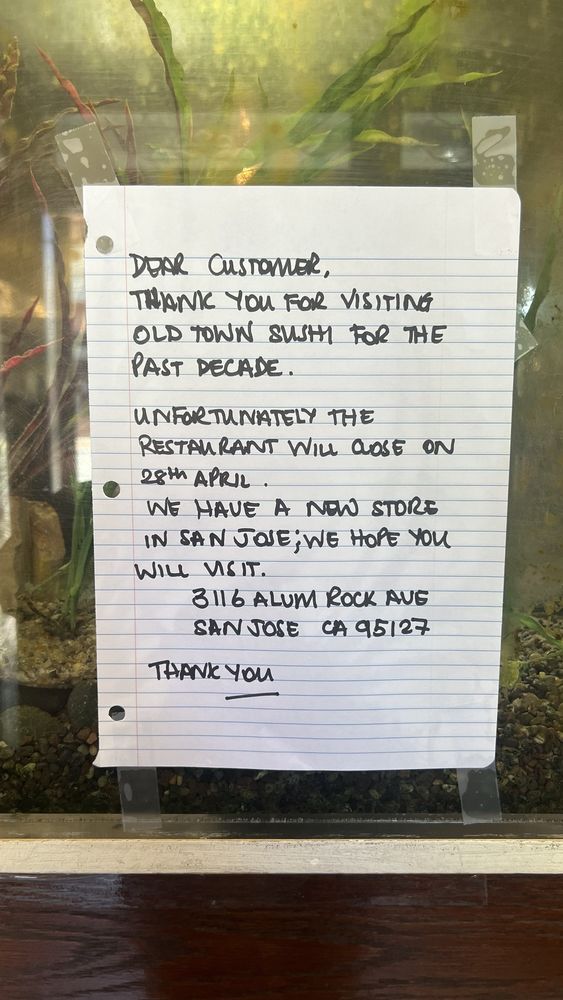 DEAR CUSTOMER,
THANK YOU FOR VISITING
OLD TOWN SUSHI FOR THE
PAST DECADE.
UNFORTUNATELY THE
RESTAURANT WILL CLOSE ON
28th APRIL.
WE HAVE A NEW STORE
IN SAN JOSE; WE HOPE YOU
WILL VISIT.
3116 ALUM ROCK AVE
SAN JOSE CA 95127
THANK YOU